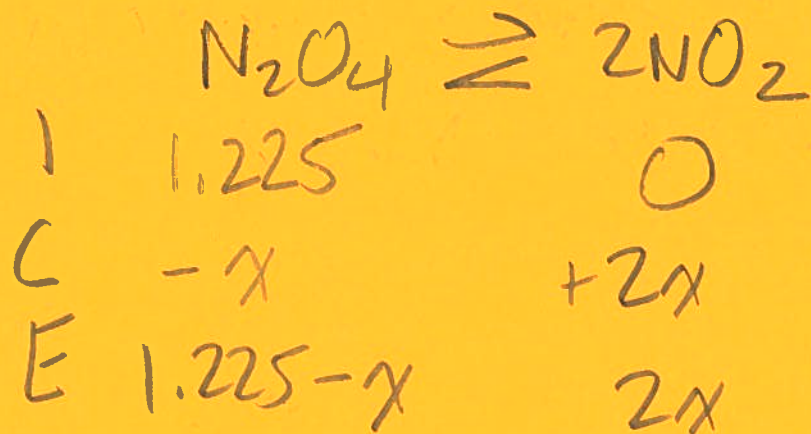 N₂O₄ ⇌ 2NO₂
I 1.225 0
C -x +2x
E 1.225-x 2x